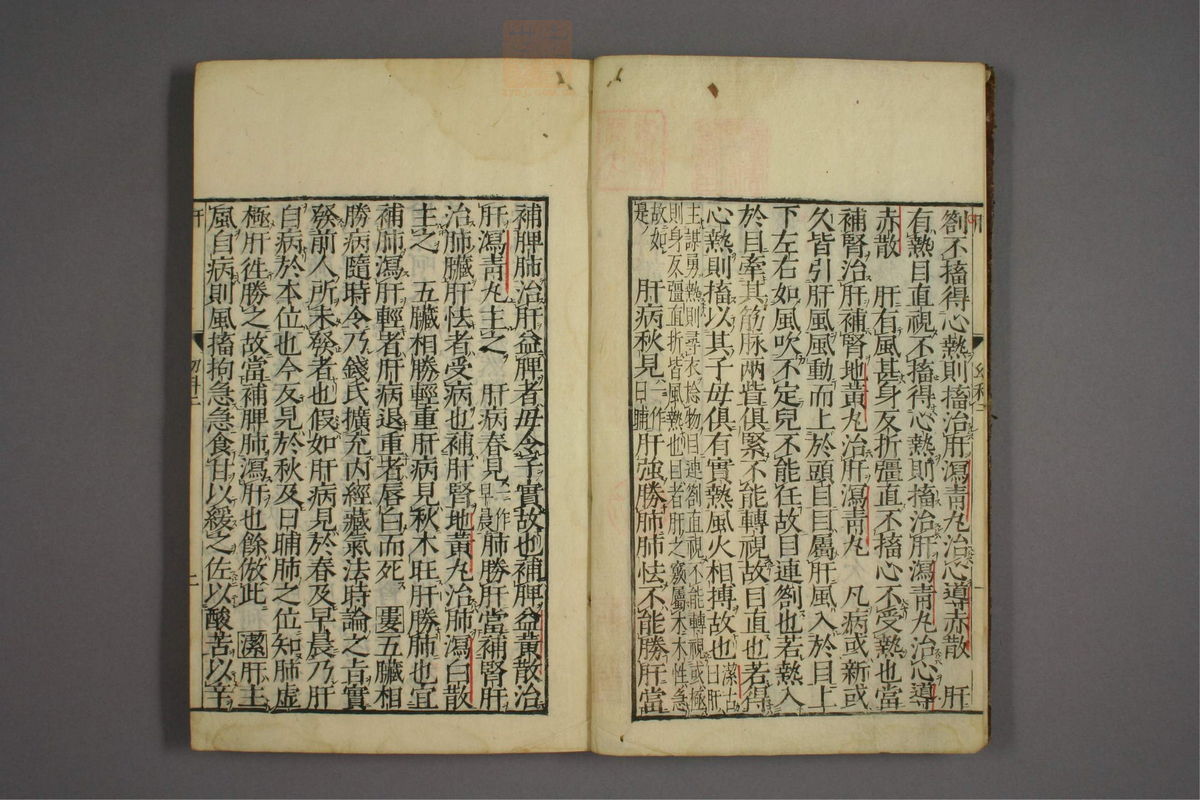 劄不搐得心熱則搐治肝瀉青丸治心導赤散　肝
有熱目直視不搐得心熱則搐治肝瀉青丸治心導
赤散　肝有風甚身反折彊直不搐心不受熱也當
補腎治肝補腎地黃丸治肝瀉青丸　凡病或新或
久皆引肝風風動而上於頭目目屬肝風入於目上
下左右如風吹不定兒不能任故目連劄也若熱入
於目牽其筋脉兩眥俱緊不能轉視故目直也若得
心熱則搐以其子母俱有實熱風火相搏故也潔古曰肝
主謀勇熱則尋衣捻物目連劄直視不能轉視或極
則身反彊直折皆風熱也目者肝之竅屬木木性急
故如是　肝病秋見一作日晡肝強勝肺肺怯不能勝肝當
補脾肺治肝益脾者母令子實故也補脾益黃散治
肝瀉青丸主之　肝病春見一作早晨肺勝肝當補腎肝
治肺臟肝怯者受病也補肝腎地黃丸治肺瀉白散
主之　五臟相勝輕重肝病見秋木旺肝勝肺也宜
補肺瀉肝輕者肝病退重者唇白而死　婁五臟相
勝病隨時令乃錢氏擴充內經藏氣法時論之旨實
發前人所未發者也假如肝病見於春及早晨乃肝
自病於本位也今反見於秋及日晡肺之位知肺虛
極肝徃勝之故當補脾肺瀉肝也餘倣此　潔肝主
風自病則風搐拘急急食甘以緩之佐以酸苦以辛